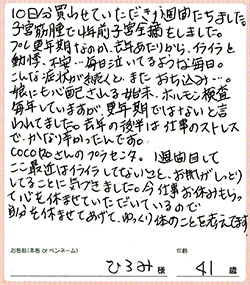 10日分買わせていただき1週間たちました。
子宮筋腫で4年前子宮全摘をしました。
プレ更年期なのか、去年あたりから、イライラと
動悸、不安…毎日泣いてるような毎日。
こんな症状が続くと、またおち込み…。
娘にも心配される始末、ホルモン検査
毎年していますが、更年期ではないと言
われてました。去年の後半は仕事のストレス
で、かなり辛かったんです。
COCOROさんのプラセンタ。1週間目して
ここ最近はイライラしてないこと、お肌がしっとり
してることに気づきました。今仕事お休みもらっ
て心を休ませていただいているので
自分を休ませてあげて、ゆっくり体のことを考えてます
お名前(本名 or ペンネーム)
年齢
ひろみ 様
41 歳